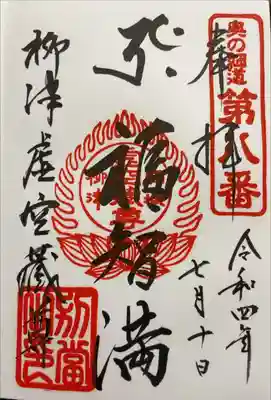 奥の細道
第八番
奉拝
令和四年
七月十日
福智満
柳津虚空藏尊
柳津
別當